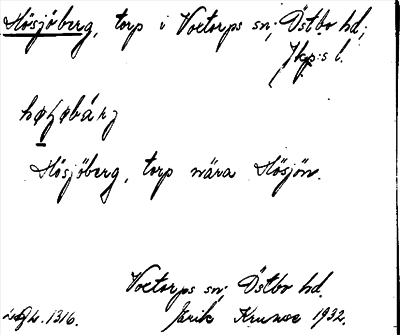 Hösjöberg, torp i Voxtorps sn; Östbo hd;
Jkp:s l.
Hösjöberg, torp nära Hösjön.
Voxtorps sn; Östbo hd.
1316. Erik Krunse 1932.